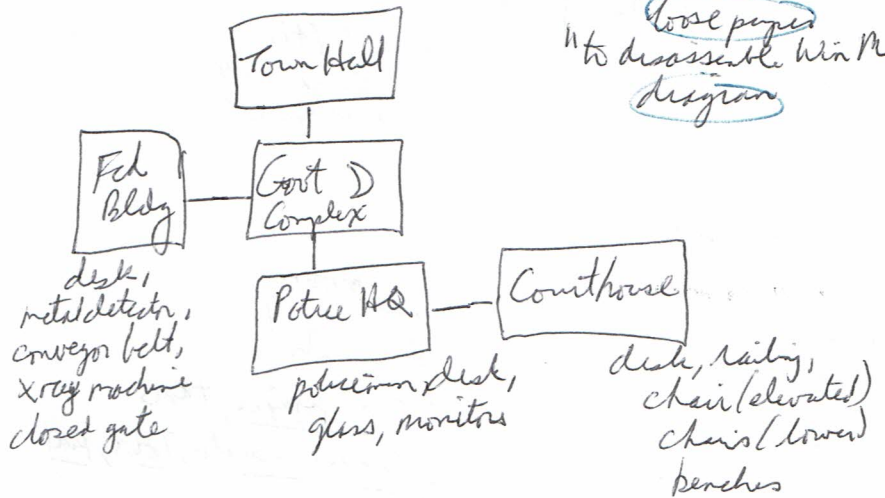 loose paper
"to disassemble Win M
diagram
Town Hall
Fed
Bldg
Gov't
Complex
Police HQ
Courthouse
desk,
metal detector,
conveyor belt,
xray machine
closed gate
policeman, desk,
glass, monitors
desk, railing,
chair (elevated)
chairs (lower)
benches